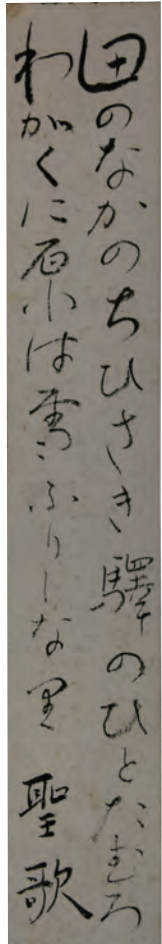 田のなかのちひさき驛のひとたむろ
わがくに原は雪ふりしなり 聖歌